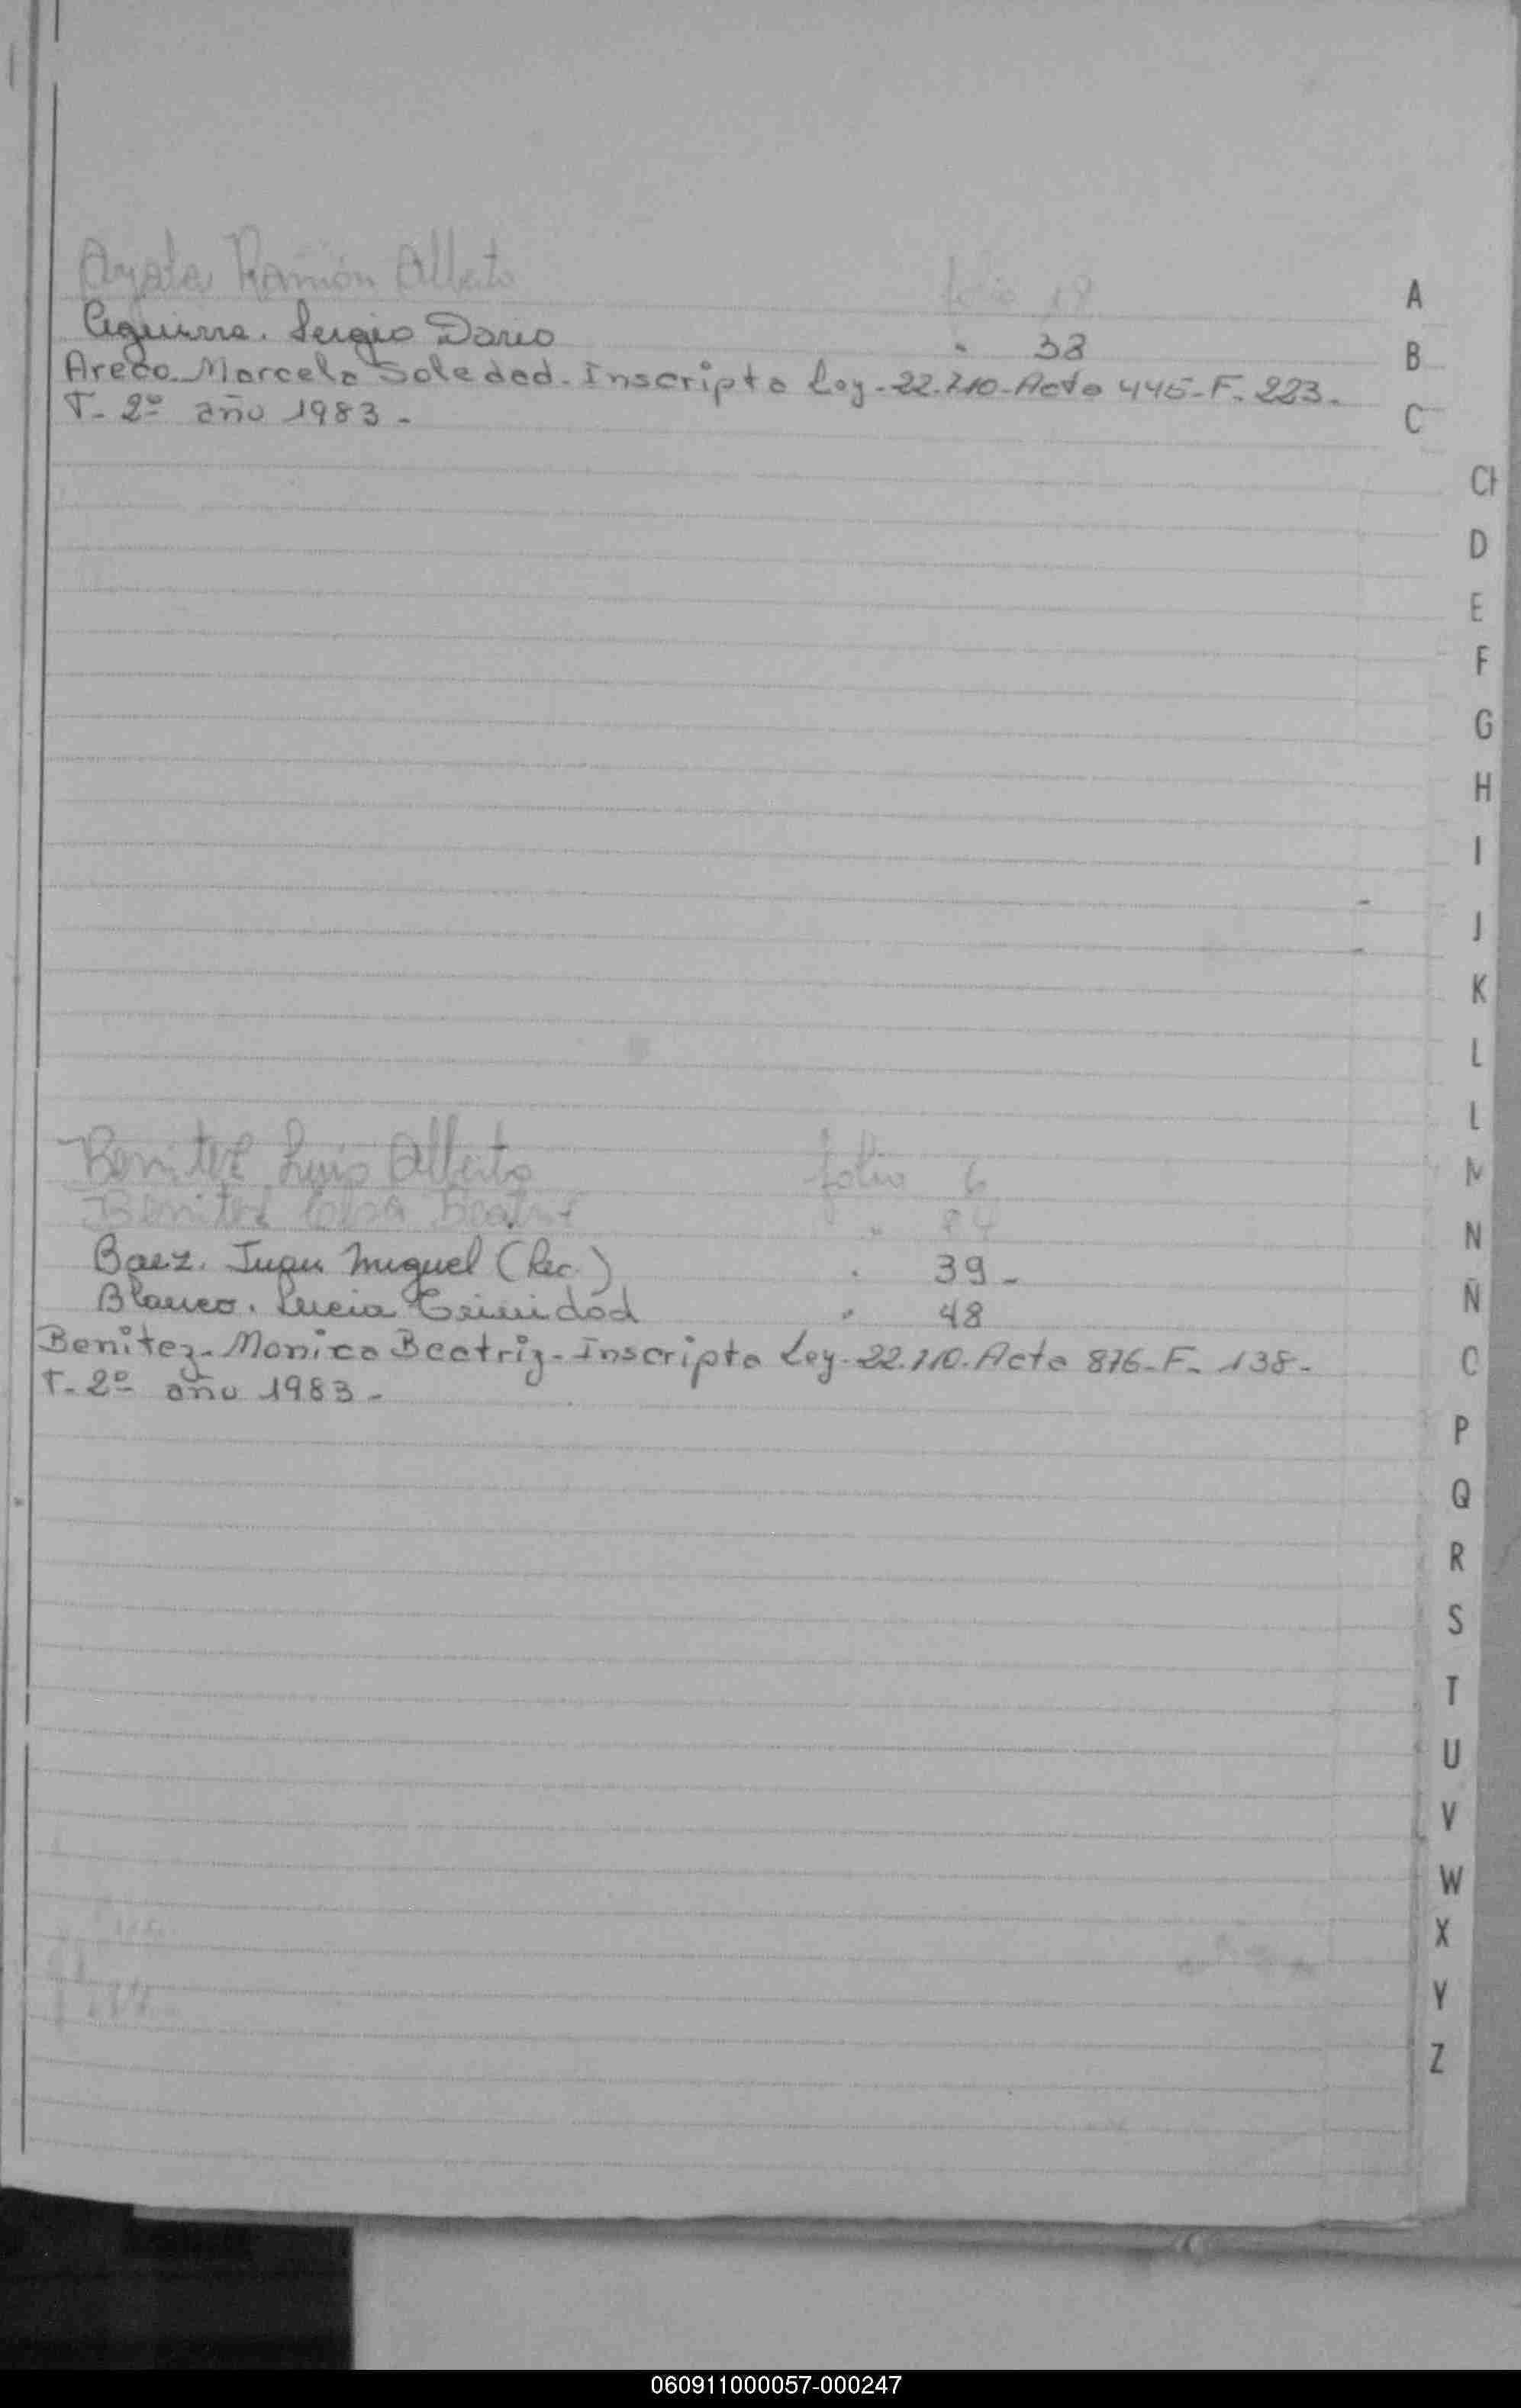 Ayala Ramón Alberto folio 18
A
Aguirre. Sergio Dario " 38
B
Areco. Marcela Soledad. Inscripta Ley. 22.210. Acta 445. F. 223.
T. 2º año 1983 -
C
CH
D
E
F
G
H
I
J
K
L
L
M
Benitez Luis Alberto folio 6
Benitez Beatriz "
N
Baez. Juan Miguel (Rec.) " 39 -
Ñ
Blanco. Lucia Trinidad " 48
Benitez. Monica Beatriz. Inscripta Ley. 22.110. Acta 876. F. 138.
T. 2º año 1983 -
O
P
Q
R
S
T
U
V
W
X
Y
Z
060911000057-000247